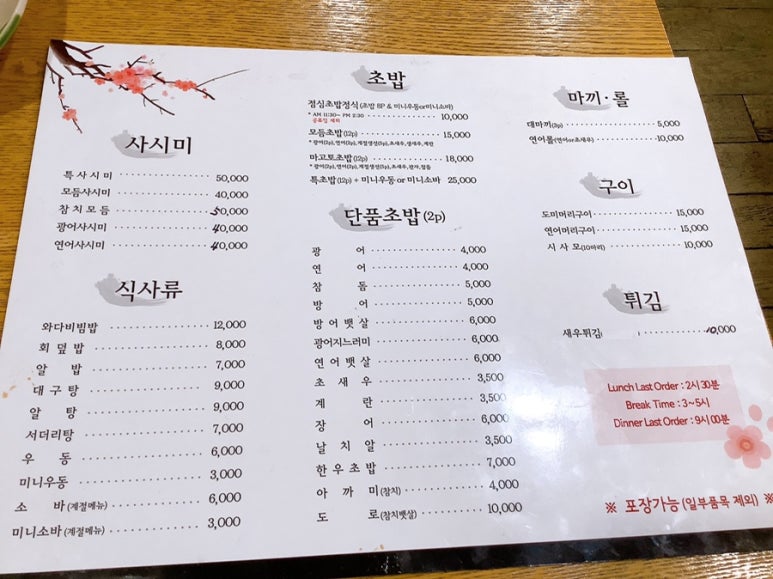 사시미
특사시미 50,000
모듬사시미 40,000
참치모듬 50,000
광어사시미 40,000
연어사시미 40,000
식사류
와다비빔밥 12,000
회덮밥 8,000
알밥 7,000
대구탕 9,000
알탕 9,000
서더리탕 7,000
우동 6,000
미니우동 3,000
소바(계절메뉴) 6,000
미니소바(계절메뉴) 3,000
초밥
점심초밥정식(초밥 8P & 미니우동or미니소바)
* AM 11:30~ PM 2:30 10,000
공휴일 제외
모듬초밥(12p) 15,000
* 광어(2p),연어(2p),계절생선(5p),초새우,생새우,계란
마고토초밥(12p) 18,000
* 광어(2p),연어(2p),계절생선(5p),초새우,장어,참돔
특초밥(12p) + 미니우동 or 미니소바 25,000
단품초밥(2p)
광어 4,000
연어 4,000
참돔 5,000
방어 5,000
방어뱃살 6,000
광어지느러미 6,000
연어뱃살 6,000
초새우 3,500
계란 3,500
장어 6,000
날치알 3,500
한우초밥 7,000
아까미(참치) 4,000
도로(참치뱃살) 10,000
마끼·롤
대마끼(3p) 5,000
연어롤(연어or초새우) 10,000
구이
도미머리구이 15,000
연어머리구이 15,000
시사모(10마리) 10,000
튀김
새우튀김 10,000
Lunch Last Order : 2시 30분
Break Time : 3~5시
Dinner Last Order : 9시 00분
※ 포장가능 (일부품목 제외) ※